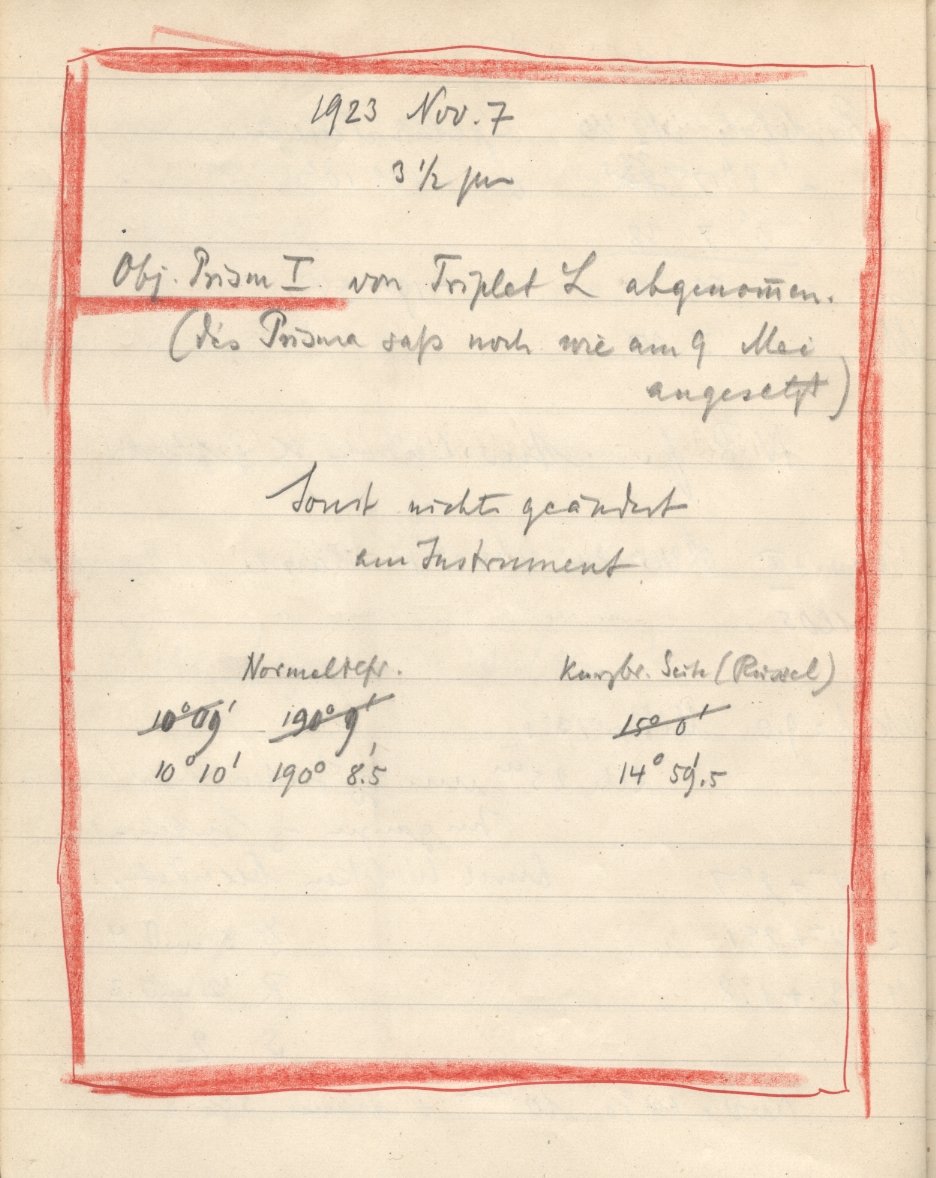 1923 Nov. 7
3 1/2 pm
Obj. Prism I. von Triplet L abgenom̄en.
(das Prisma saß noch wie am 9 Mai
angesetzt)
Sonst nichts geändert
am Instrument
Normalrefr. Kurzbr. Seite
10° 09' 190° 9' 15° 0'
10° 10' 190° 8.'5 14° 59.'5